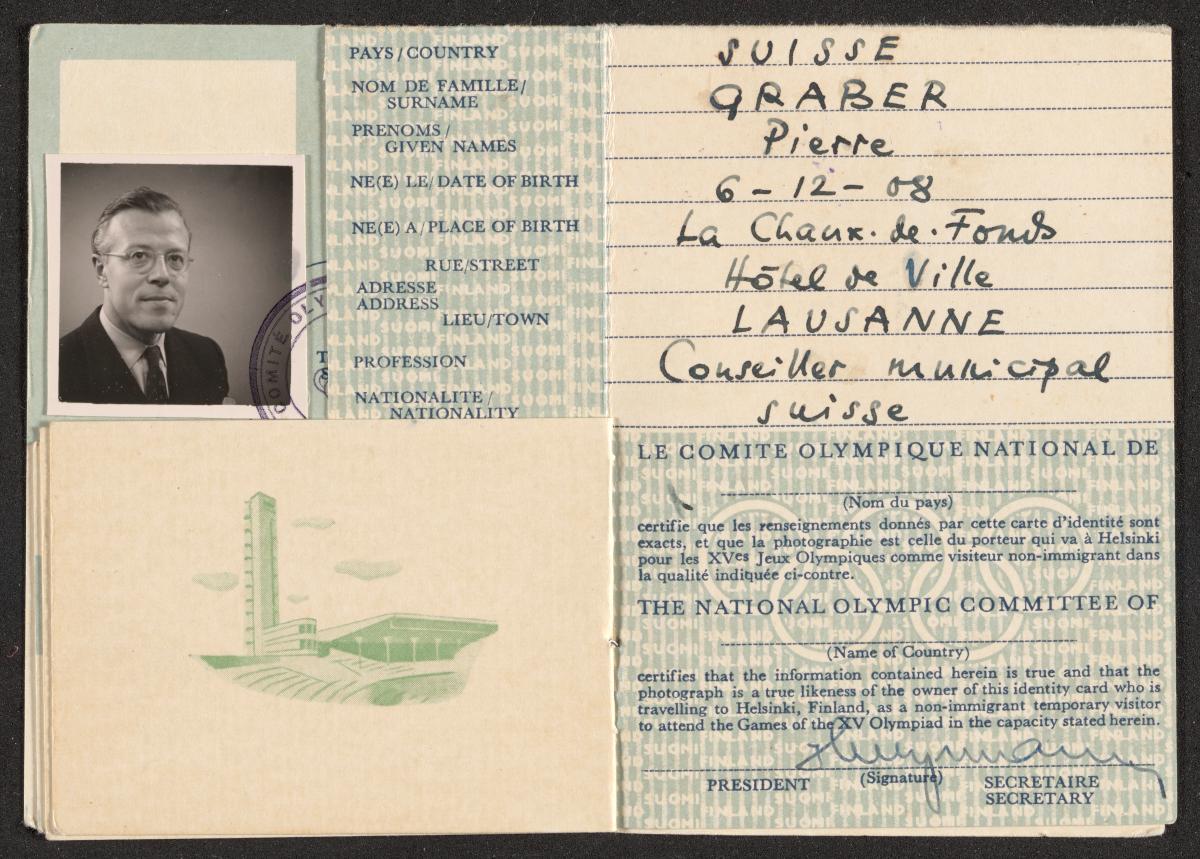 PAYS/COUNTRY
SUISSE
NOM DE FAMILLE/
SURNAME
GRABER
PRENOMS/
GIVEN NAMES
Pierre
NE(E) LE/DATE OF BIRTH
6-12-08
NE(E) A/PLACE OF BIRTH
La Chaux-de-Fonds
RUE/STREET
Hôtel de Ville
ADRESSE
ADDRESS
LIEU/TOWN
LAUSANNE
PROFESSION
Conseiller municipal
NATIONALITE/
NATIONALITY
suisse
COMITÉ OLY
LE COMITE OLYMPIQUE NATIONAL DE
(Nom du pays)
certifie que les renseignements donnés par cette carte d'identité sont
exacts, et que la photographie est celle du porteur qui va à Helsinki
pour les XVes Jeux Olympiques comme visiteur non-immigrant dans
la qualité indiquée ci-contre.
THE NATIONAL OLYMPIC COMMITTEE OF
(Name of Country)
certifies that the information contained herein is true and that the
photograph is a true likeness of the owner of this identity card who is
travelling to Helsinki, Finland, as a non-immigrant temporary visitor
to attend the Games of the XV Olympiad in the capacity stated herein.
PRESIDENT
(Signature)
SECRETAIRE
SECRETARY